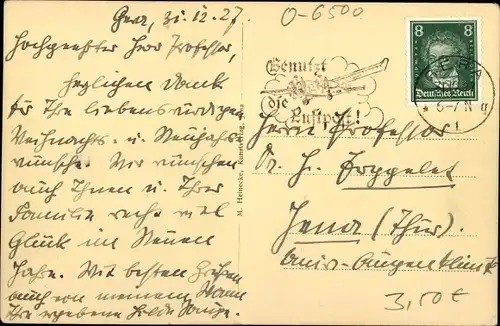 Gera, 31.12.27.
Hochgeehrter Herr Professor,
herzlichen Dank
für Ihre liebenswürdigen
Weihnachts- u. Neujahrs-
wünsche. Wir wünschen
auch Ihnen u. Ihrer
Familie recht viel
Glück im Neuen
Jahre. Mit besten Grüßen
auch von meinem Mann
Ihre ergebene Hilde
M. Heinecke, Kunstverlag, Gera
O-6500
Benutzt
die
Luftpost!
8 8
Deutsches Reich
GERA
6-7 N
Herrn Professor
Dr. H.
Jena (Thür).
Univ.-Augenklinik
3,50 €